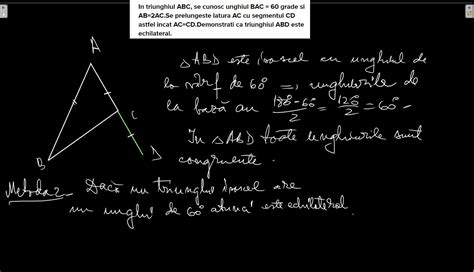 In triunghiul ABC, se cunosc unghiul BAC = 60 grade si
AB=2AC.Se prelungeste latura AC cu segmentul CD
astfel incat AC=CD.Demonstrati ca triunghiul ABD este
echilateral.
A
△ABD este isoscel cu unghiul de
la vârf de 60° ⇒ unghiurile de
la bază au (180°-60°)/2 = 120°/2 = 60°-
C
In △ABD toate unghiurile sunt
D
congruente.
B
Metoda 2 - Dacă un triunghi isoscel are
un unghi de 60° atunci este echilateral.